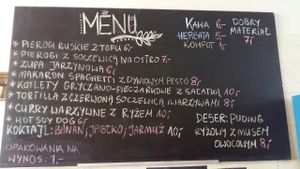 MENU
* PIEROGI RUSKIE Z TOFU 6,-
* PIEROGI Z SOCZEWICĄ NA OSTRO 7,-
* ZUPA JARZYNOWA 6,-
* MAKARON SPAGHETTI Z DYNIOWYM PESTO 8,-
* KOTLETY GRYCZANO-PIECZARKOWE Z SAŁATKĄ 10,-
* TORTILLA Z CZERWONĄ SOCZEWICĄ I WARZYWAMI 8,-
* CURRY WARZYWNE Z RYŻEM 10,-
* HOT SOY DOG 6,-
KOKTAJL: BANAN, JABŁKO, JARMUŻ 10,-
OPAKOWANIA NA
WYNOS: 1.-
KAWA 6,-
HERBATA 5,-
KOMPOT 1,-
DOBRY
MATERIAŁ
7,-
DESER: PUDING
RYŻOWY Z MUSEM
OWOCOWYM 8,-